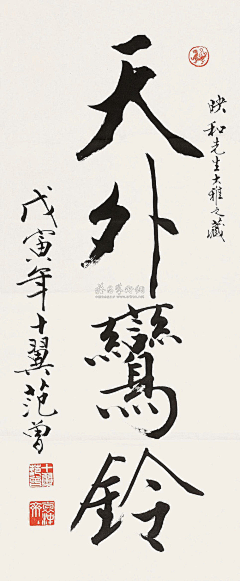 映和先生大雅之藏
天外鸞鈴
戊寅年十翼范曾